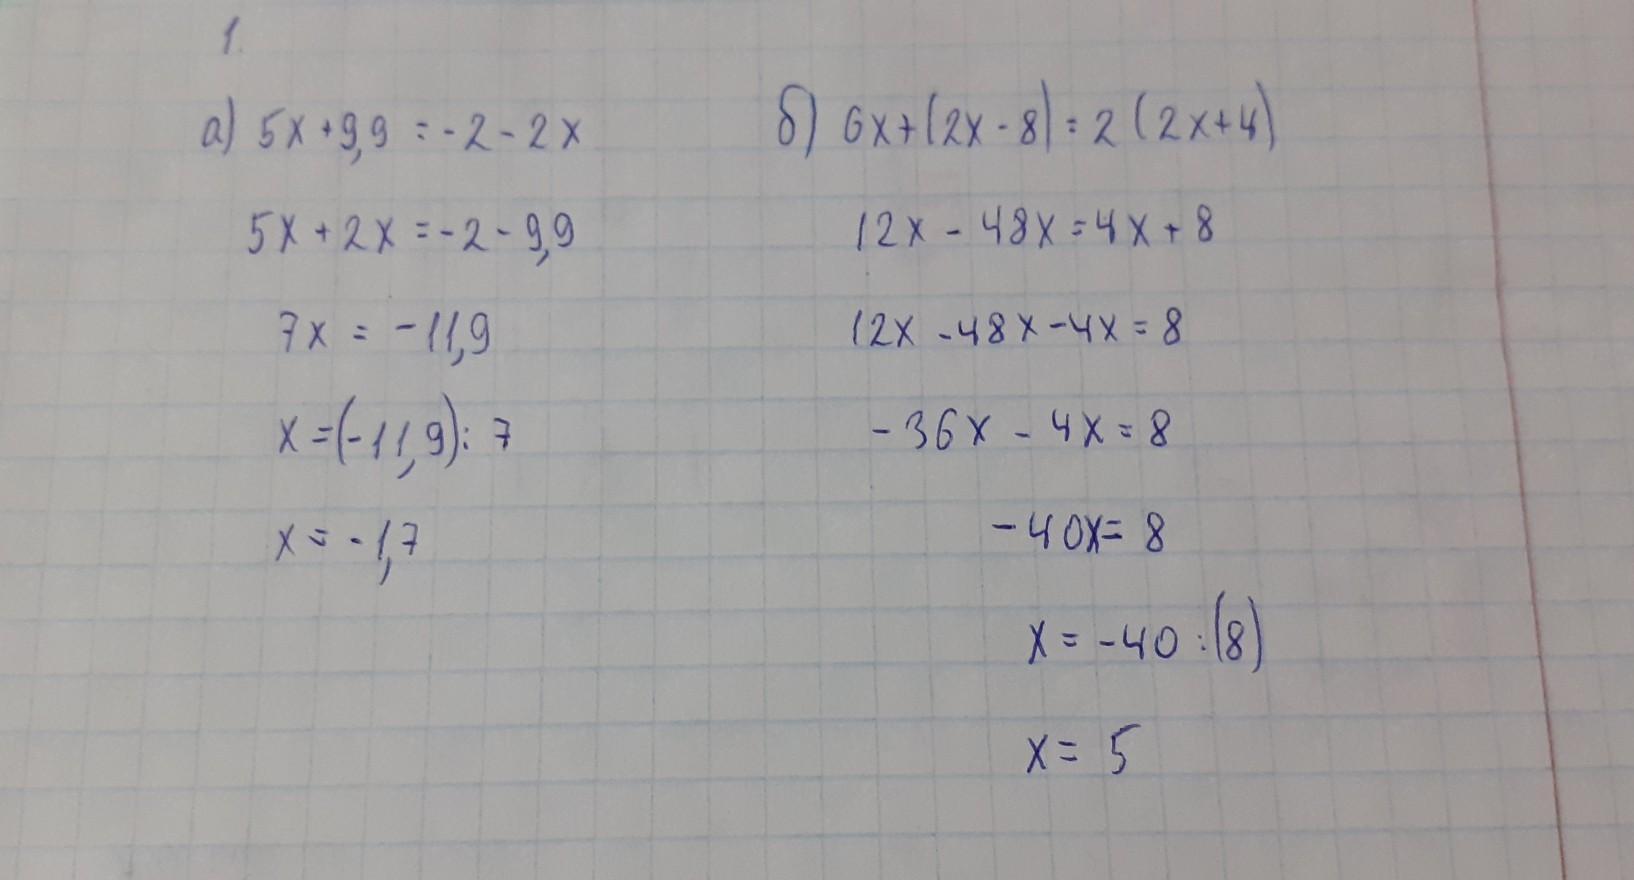 1.
а) 5x+9,9 = -2 - 2x
5x + 2x = -2 - 9,9
7x = -11,9
x = (-11,9) : 7
x = -1,7
б) 6x+(2x-8) = 2(2x+4)
12x - 48x = 4x + 8
12x - 48x - 4x = 8
-36x - 4x = 8
-40x = 8
x = -40 : (8)
x = 5